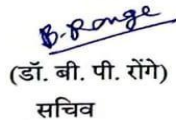 B.Ronge
(डॉ. बी. पी. रोंगे)
सचिव